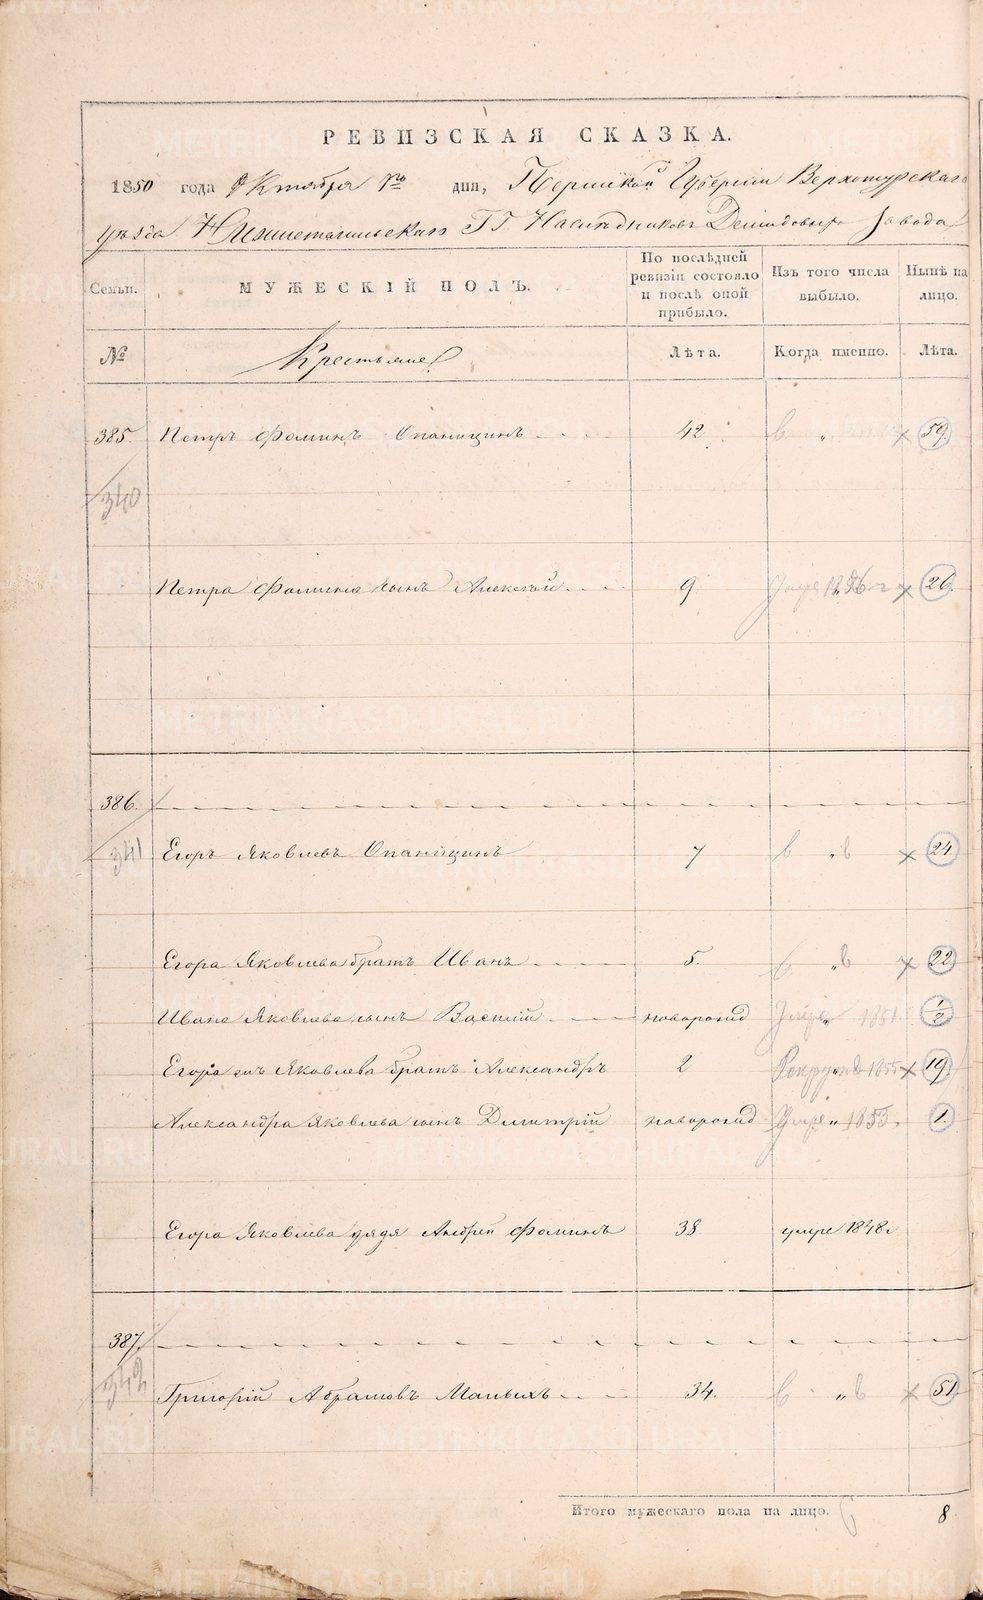 РЕВИЗСКАЯ СКАЗКА.
1850 года Октября дня, Пермской Губернiи Верхотурскаго
уѣзда Нижнетагильскаго ГГ Наслѣдниковъ Демидовыхъ Завода
Семьи. МУЖЕСКІЙ ПОЛЪ. По послѣдней ревизіи состояло и послѣ оной прибыло. Изъ того числа выбыло. Нынѣ на лицо.
№ Крестьяне Лѣта. Когда именно. Лѣта.
385. Петръ Фоминъ Опаницинъ 42 „ 59.
340
Петра Фомина сынъ Алексѣй 9 „ 26.
386.
341 Егоръ Яковлевъ Опаницинъ 7 „ 24
Егора Яковлева братъ Иванъ 5. „ 22
Ивана Яковлева сынъ Василій новорожд „ 1851 1/2
Егора Яковлева братъ Александръ 2 „ 1855 19
Александра Яковлева сынъ Димитрій новорожд Умре „ 1853. 1.
Егора Яковлева дядя Андрей Фоминъ 38 умре 1848г
387.
342 Григорій Абрамовъ Малыхъ 34. „ 51
Итого мужескаго пола на лицо. 8
METRIKI.GASO-URAL.RU